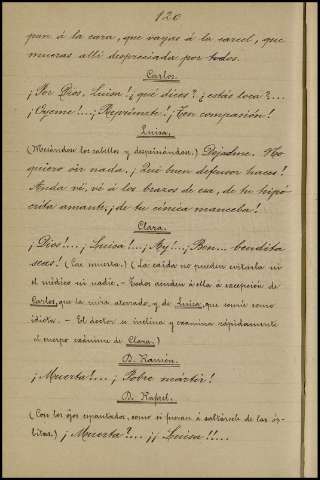 120
pan á la cara, que vayas á la carcel, que
mueras alli despreciada por todos.
Carlos.
¡Por Dios, Luisa! ¿qué dices? ¿estás loca?...
¡Oyeme!... ¡Reprimete! ¡Ten compasión!
Luisa.
(Mesándose los cabellos y despeinándose.) Dejadme. No
quiero oir nada. ¡Qué buen defensor haces!
Anda vé, vé á los brazos de esa, de tu hipó
crita amante, ¡de tu cínica manceba!
Clara.
¡Dios!... ¡Luisa!... ¡Ay!... ¡Ben... bendita
seas! (Cae muerta.) (La caida no pueden evitarla ni
el médico ni nadie. - Todos acuden á ella á excepción de
Carlos, que la mira aterrado, y de Luisa, que sonríe como
idiota. - El doctor se inclina y examina rápidamente
el cuerpo exánime de Clara.)
D. Ramón.
¡Muerta!... ¡Pobre mártir!
D. Rafael.
(Con los ojos espantados, como si fueran á saltársele de las ór-
bitas.) ¡Muerta?... ¡¡Luisa!!...